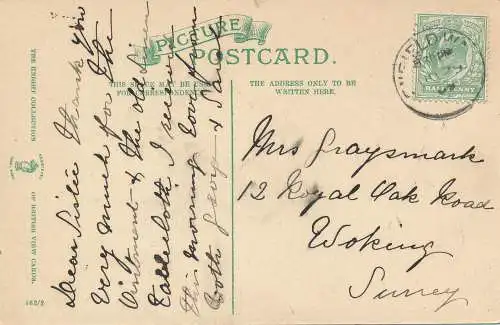 PICTURE
POSTCARD.
THIS SPACE MAY BE USED
FOR CORRESPONDENCE.
THE ADDRESS ONLY TO BE
WRITTEN HERE.
HALFPENNY
THE KNIGHT COLLECTION
OF BRITISH VIEW CARDS.
Dear Sister Thank you
very much for the
Ointment & the old linen
Tablecloth I received
this morning love from
both
Mrs Graysmark
12 Royal Oak Road
Woking
Surrey